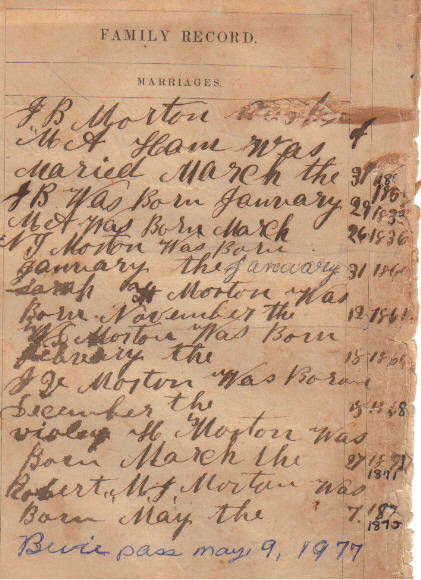 FAMILY RECORD.
MARRIAGES.
J B Morton
M A Ham Was
Maried March the 31
J B Was Born January 29 1832
M A Was Born March 26 1836
N J Morton Was Born
January the January 31
Sarah Morton Was
Born November the 12 1861
W S Morton Was Born
february the 18
J Morton Was Born
December the
violey H Morton Was
Born March the 27
1871
Robert M J Morton Was
Born May the 7 187
1875
Bevie pass may 9, 1977